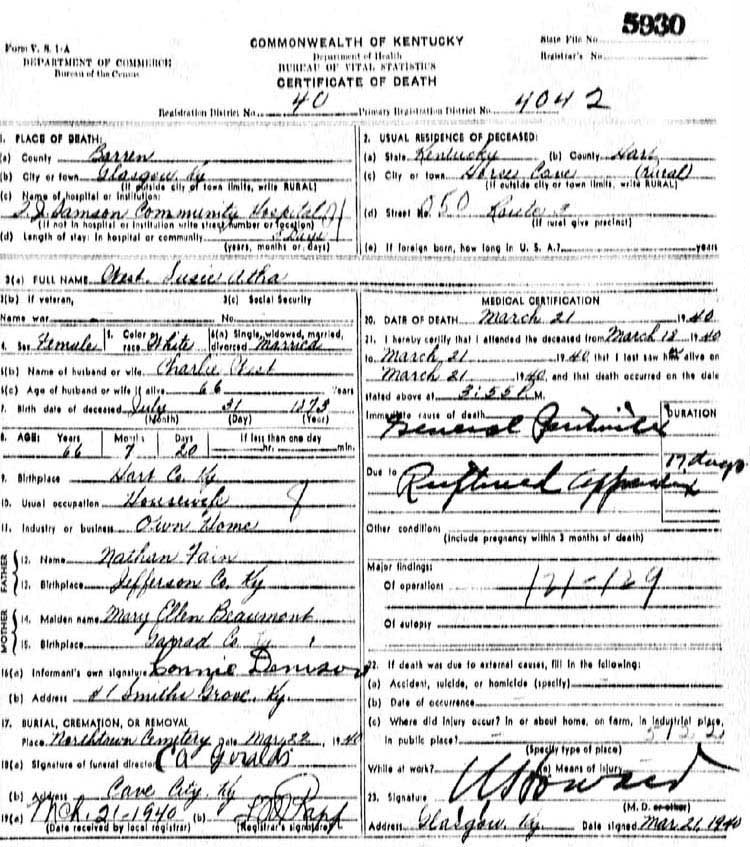 5930
Form V. S. 1-A
DEPARTMENT OF COMMERCE
Bureau of the Census
COMMONWEALTH OF KENTUCKY
Department of Health
BUREAU OF VITAL STATISTICS
CERTIFICATE OF DEATH
State File No.
Registrar's No.
Registration District No. 40 Primary Registration District No. 4042
1. PLACE OF DEATH:
(a) County Barren
(b) City or town Glasgow Ky
(If outside city or town limits, write RURAL)
(c) Name of hospital or institution:
T J Samson Community Hospital
(If not in hospital or institution write street number or location)
(d) Length of stay: In hospital or community days
(years, months or days)
2. USUAL RESIDENCE OF DECEASED:
(a) State Kentucky (b) County Hart
(c) City or town Horse Cave (rural)
(If outside city or town limits, write RURAL)
(d) Street No. Route
(If rural give precinct)
(e) If foreign born, how long in U. S. A.? years
3(a) FULL NAME West, Susie Altha
3(b) If veteran, 3(c) Social Security
Name war No.
4. Sex Female 5. Color or race White 6(a) Single, widowed, married, divorced Married
6(b) Name of husband or wife Charlie West
6(c) Age of husband or wife if alive 66 Years
7. Birth date of deceased July 31 1873
(Month) (Day) (Year)
8. AGE: Years Months Days If less than one day
66 7 20 hr. min.
9. Birthplace Hart Co. Ky
10. Usual occupation Housewife
11. Industry or business Own Home
FATHER
12. Name Nathan Fain
13. Birthplace Jefferson Co. Ky
MOTHER
14. Maiden name Mary Ellen Beaumont
15. Birthplace Garrad Co.
16(a) Informant's own signature Connie Denison
(b) Address #1 Smiths Grove, Ky.
17. BURIAL, CREMATION, OR REMOVAL
Place Northtown Cemetery Date Mar 22, 1940
18(a) Signature of funeral director C A Geralds
(b) Address Cave City, Ky
19(a) Mch. 21-1940 (b)
(Date received by local registrar) (Registrar's signature)
MEDICAL CERTIFICATION
20. DATE OF DEATH March 21 1940
21. I hereby certify that I attended the deceased from March 18 1940
to March 21 1940, that I last saw her alive on
March 21 1940, and that death occurred on the date
stated above at 3:55 P.M.
Immediate cause of death DURATION
General
Due to 17 days
Ruptured appendix
Other conditions
(Include pregnancy within 3 months of death)
Major findings:
Of operations 121-129
Of autopsy
22. If death was due to external causes, fill in the following:
(a) Accident, suicide, or homicide (specify)
(b) Date of occurrence
(c) Where did injury occur? In or about home, on farm, in industrial place,
in public place?
(Specify type of place)
While at work? (e) Means of injury
23. Signature Howard
(M. D. or other)
Address Glasgow, Ky Date signed Mar. 21, 1940